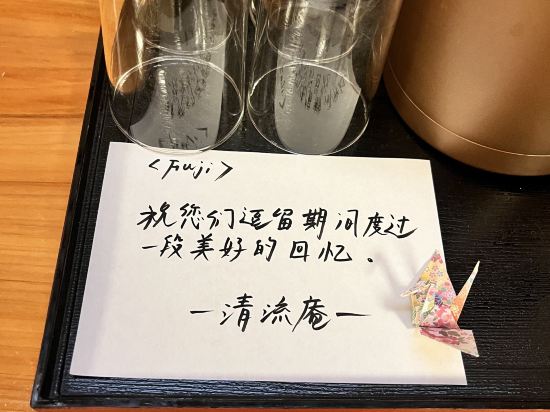 <Fuji>
祝您们逗留期间度过
一段美好的回忆。
一清流庵一